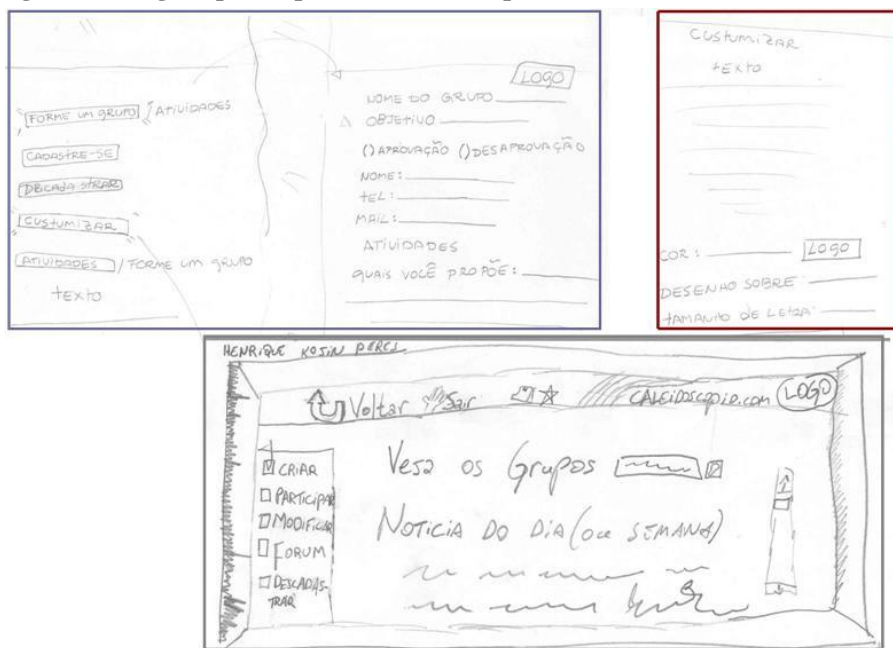 FORME UM GRUPO / ATIVIDADES
CADASTRE-SE
CUSTUMIZAR
ATIVIDADES / FORME UM GRUPO
TEXTO
LOGO
NOME DO GRUPO
OBJETIVO
() APROVAÇÃO () DESAPROVAÇÃO
NOME:
TEL:
MAIL:
ATIVIDADES
QUAIS VOCÊ PROPÕE:
CUSTUMIZAR
TEXTO
COR: LOGO
DESENHO SOBRE:
TAMANHO DE LETRA:
HENRIQUE
Voltar Sair CALEIDOSCOPIO.COM LOGO
CRIAR
PARTICIPAR
MODIFICAR
FORUM
DESCADAS-
TRAR
Veja os Grupos
NOTICIA DO DIA (ou SEMANA)